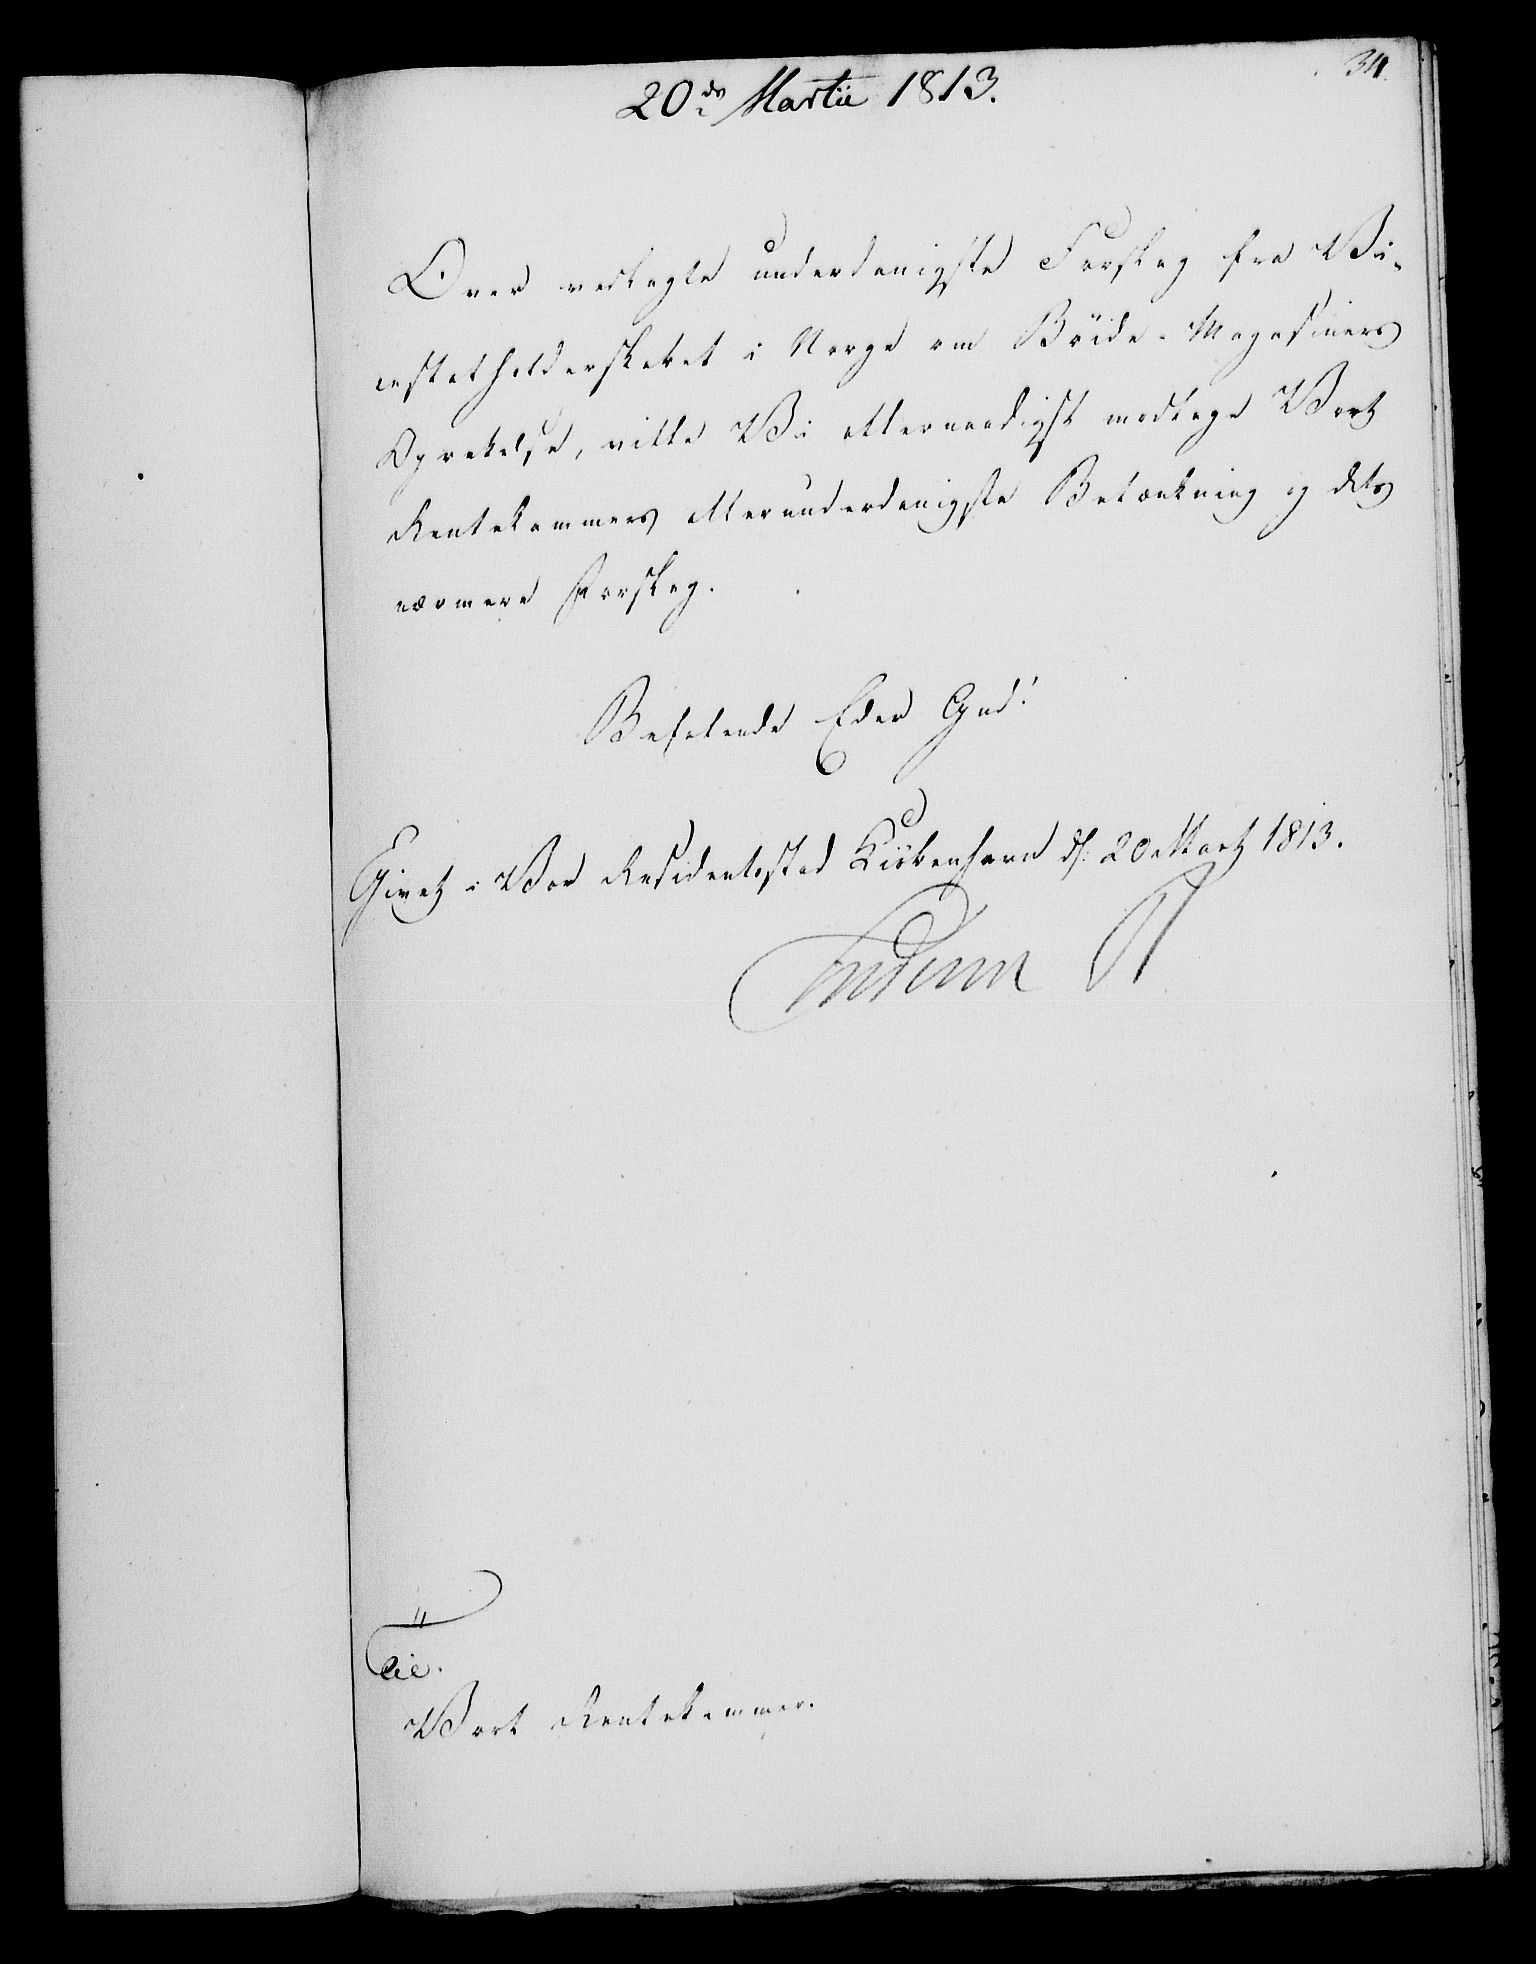 34.
20de Martii 1813.
Over vedlagte underdanigste Forslag fra Vi-
cestatholderskabet i Norge om Böide-Magasiners
Oprettelse, ville Vi allernaadigst modtage Vort
Rentekammers allerunderdanigste Betænkning og dets
nærmere Forslag.
Befalende Eder Gud!
Givet i Vor Residentsstad Kiöbenhavn d. 20 Martz 1813.
Frederik R
Til
Vort Rentekammer.